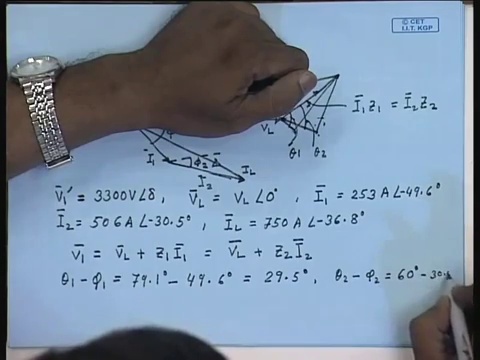 © CET
I.I.T. KGP
Ī₁Z₁ = Ī₂Z₂
V_L
θ₁ θ₂
Ī₁ φ₂
Ī₂ I_L
V̄₁' = 3300V∠δ, V̄_L = V_L∠0°, Ī₁ = 253 A∠-49.6°
Ī₂ = 506 A∠-30.5°, Ī_L = 750 A∠-36.8°
V̄₁ = V̄_L + Z₁Ī₁ = V̄_L + Z₂Ī₂
θ₁ - φ₁ = 79.1° - 49.6° = 29.5°, θ₂ - φ₂ = 60° - 30.5